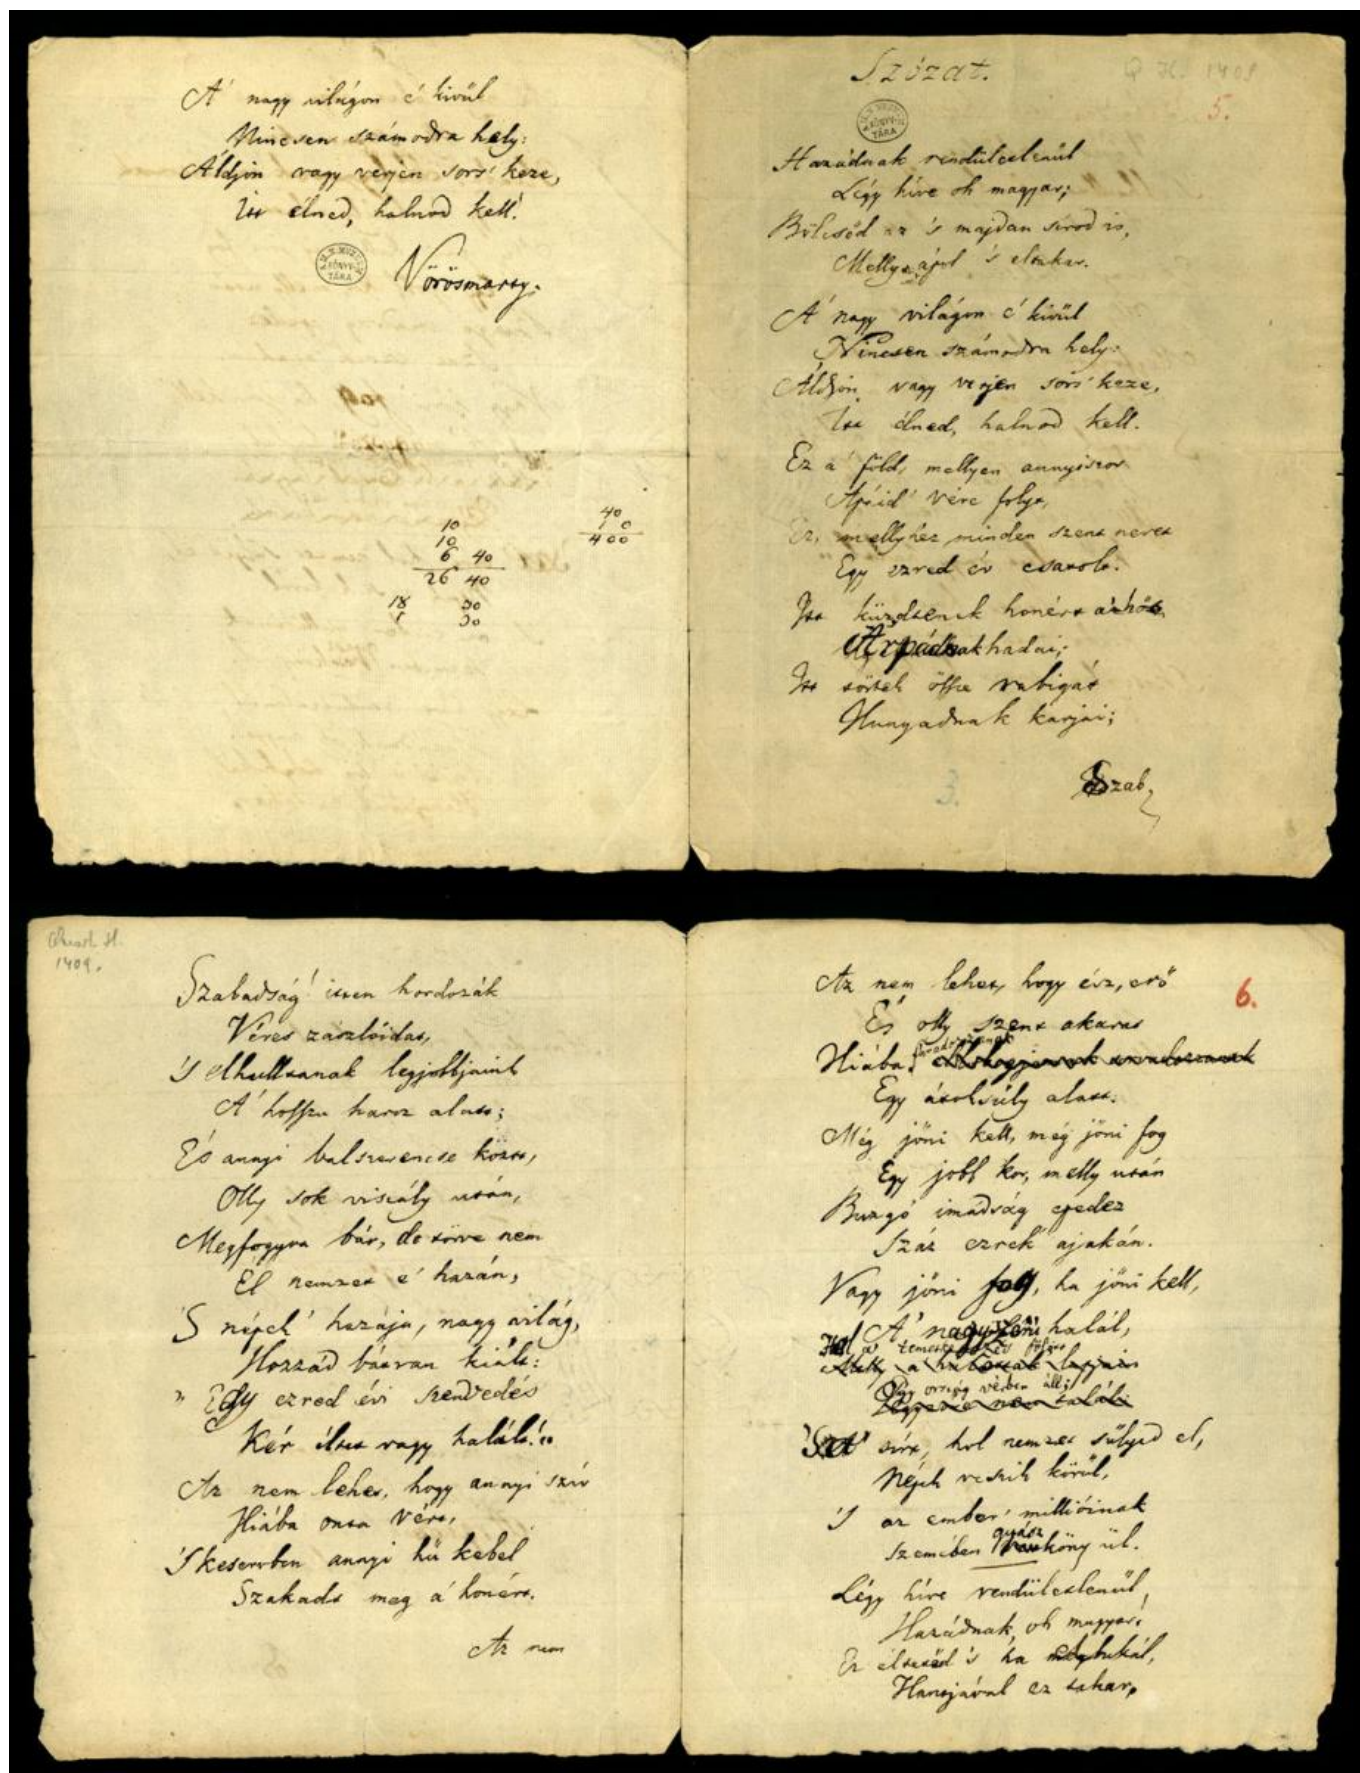 A' nagy világon e' kivül
Nincsen számodra hely:
Áldjon vagy verjen sors' keze,
Itt élned, halnod kell!
Vörösmarty.
M. N. MUZEUM KÖNYV-TÁRA
40
10
400
10
10
6 40
26 40
18 30
1 30
Szózat.
Q H. 1409
5.
KÖNYV-TÁRA
Hazádnak rendületlenűl
Légy híve oh magyar;
Bölcsőd az 's majdan sírod is,
Melly ápol 's eltakar.
A' nagy világon e' kivűl
Nincsen számodra hely:
Áldjon vagy verjen sors' keze,
Itt élned, halnod kell.
Ez a' föld, mellyen annyiszor
Apáid' vére folyt,
Ez, mellyhez minden szent nevet
Egy ezred év csatolt.
Itt küzdtenek honért a' hős
Árpádnak hadai;
Itt törtek össze rabigát
Hunyadnak karjai;
3.
Szab,
Quart. H.
1409.
Szabadság! itten hordozák
Véres zászlóidat,
'S elhulltanak legjobbjaink
A' hosszu harcz alatt;
És annyi balszerencse közt,
Olly sok viszály után,
Megfogyva bár, de törve nem
Él nemzet e' hazán,
'S népek' hazája, nagy világ,
Hozzád bátran kiált:
„ Egy ezred évi szenvedés
Kér éltet vagy halált!"
Az nem lehet, hogy annyi szív
Hiába onta vért,
'S keservben annyi hű kebel
Szakadt meg a' honért.
Az nem
Az nem lehet, hogy ész, erő
6.
És olly szent akarat
Hiába sorvadozzanak
Egy átoksúly alatt.
Még jőni kell, még jőni fog
Egy jobb kor, melly után
Buzgó imadság epedez
Száz ezrek' ajakán.
Vagy jőni fog, ha jőni kell,
A' nagyszerü halál,
Hol a' temetkezés fölött
Egy ország vérben áll;
'S a' sírt, hol nemzet sűlyed el,
Népek veszik körűl,
'S az ember' millióinak
Szemében gyász köny űl.
Légy híve rendületlenűl,
Hazádnak, oh magyar:
Ez éltetőd 's ha elbukál,
Hantjával ez takar,